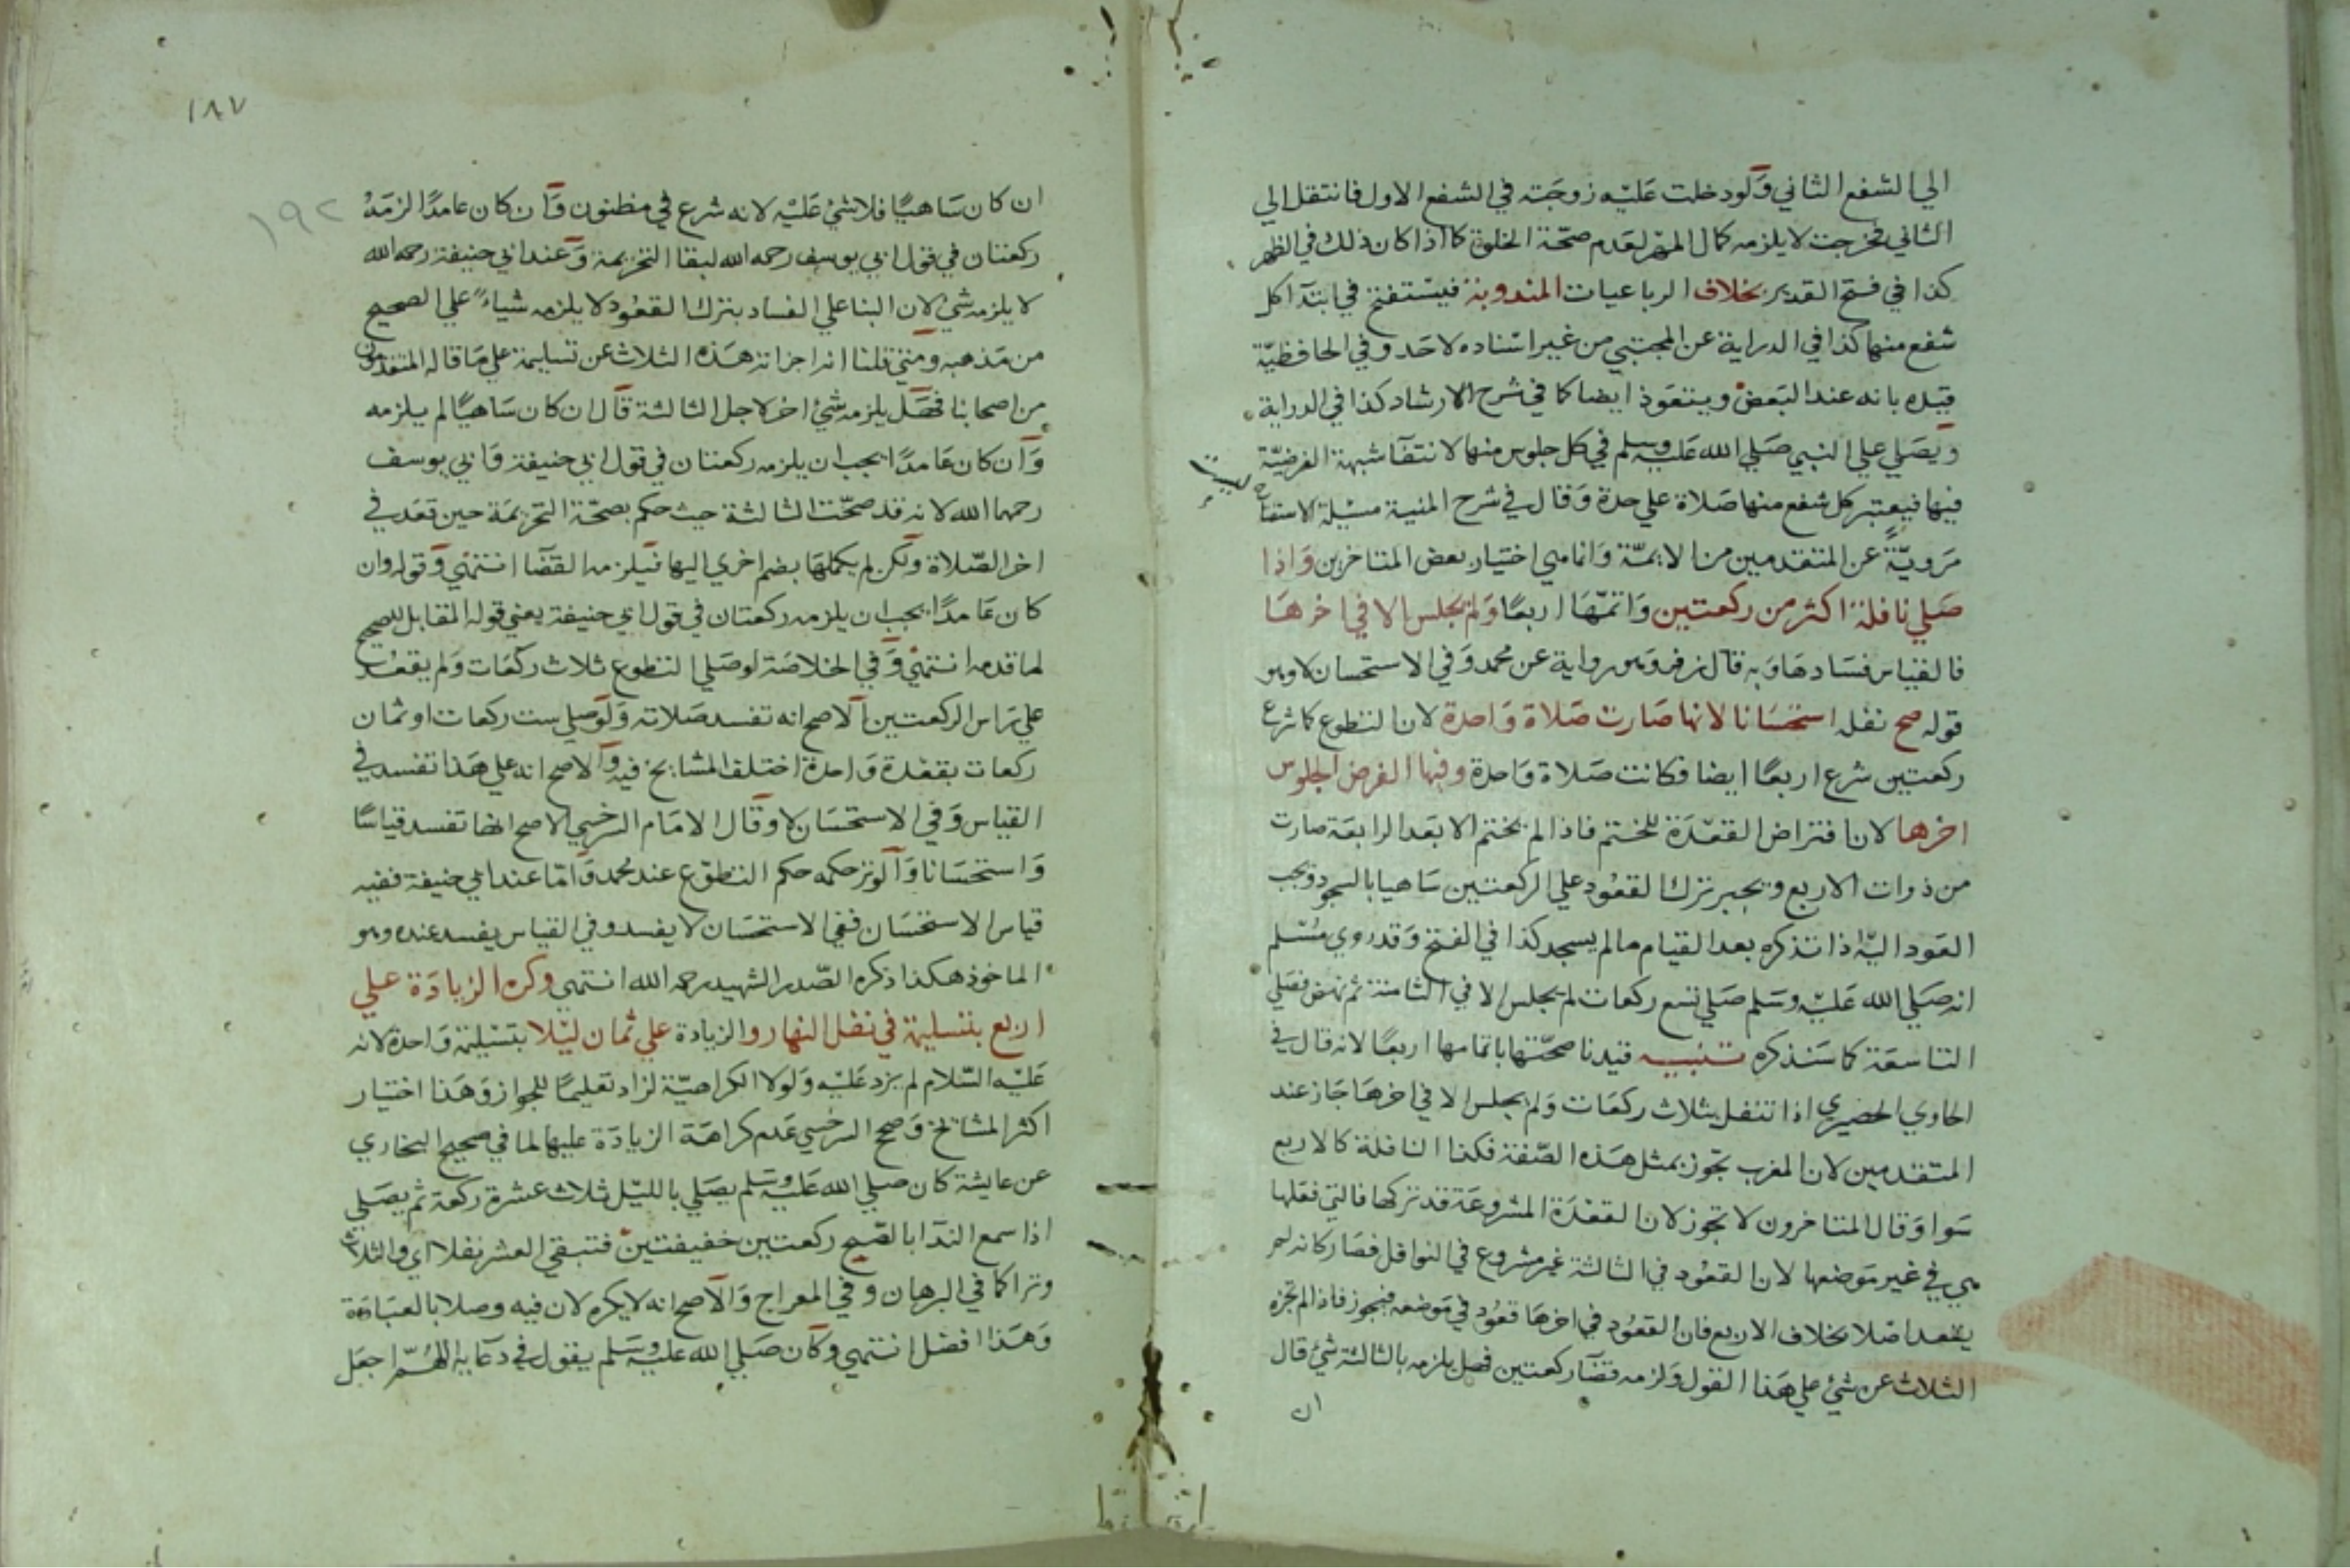 الي الشفع الثاني ولو دخلت عليه زوجته في الشفع الاول فانتقل الي
الثاني فخرجت لا يلزمه كمال المهر لعدم صحة الخلوة كما اذا كان ذلك في الظهر
كذا في فتح القدير بخلاف الرباعيات المندوبة فيستفتح في ابتدآ كل
شفع منها كذا في الدراية عن المجتبي من غير اسناده لاحد وفي الحافظية
قيده بانه عند البعض ويتعوذ ايضا كما في شرح الارشاد كذا في الدراية
ويصلي علي النبي صلي الله عليه وسلم في كل جلوس منها لانتفآ شبهة الفرضية
فيها فيعتبر كل شفع منها صلاة علي حدة وقال في شرح المنية مسئلة الاستفتاح
مروية عن المتقدمين من الايمة وانما هي اختيار بعض المتاخرين واذا
صلي نافلة اكثر من ركعتين واتمها اربعا ولم يجلس الا في اخرها
فالقياس فسادها وبه قال زفر وهو رواية عن محمد وفي الاستحسان لا وهو
قوله صح نفله استحسانا لانها صارت صلاة واحدة لان التطوع كما شرع
ركعتين شرع اربعا ايضا فكانت صلاة واحدة وفيها الفرض الجلوس
اخرها لان افتراض القعدة للختم فاذا لم يختم الا بعد الرابعة صارت
من ذوات الاربع ويجبر ترك القعود علي الركعتين ساهيا بالسجود ويجب
العود اليه اذا تذكره بعد القيام مالم يسجد كذا في الفتح وقد روي مسلم
انه صلي الله عليه وسلم صلي تسع ركعات لم يجلس الا في الثامنة ثم نهض فصلي
التاسعة كما سنذكره تنبيه قيدنا صحتها باتمامها اربعا لانه قال في
الحاوي الحضيري اذا تنفل بثلاث ركعات ولم يجلس الا في اخرها جاز عند
المتقدمين لان المغرب تجوز بمثل هذه الصفة فكذا النافلة كالاربع
سوا وقال المتاخرون لا تجوز لان القعدة المشروعة قد تركها فالتي فعلها
هي في غير موضعها لان القعود في الثالثة غير مشروع في النوافل فصار كانه لم
يقعد اصلا بخلاف الاربع فان القعود في اخرها قعود في موضعه فيجوز فاذا لم تجزه
الثلاث عن شئ علي هذا القول ولزمه قضآ ركعتين فهل يلزمه بالثالثة شئ قال
ان
١٨٧
١٩٢
ان كان ساهيا فلا شئ عليه لانه شرع في مظنون وان كان عامدا لزمه
ركعتان في قول ابي يوسف رحمه الله لبقا التحريمة وعند ابي حنيفة رحمه الله
لا يلزمه شئ لان البنا علي الفساد بترك القعود لا يلزمه شياء علي الصحيح
من مذهبه ومتي قلنا انه اجزاته هذه الثلاث عن تسليمة علي ما قاله المتقدمون
من اصحابنا فهل يلزمه شئ اخر لاجل الثالثة قال ان كان ساهيا لم يلزمه
وان كان عامدا يجب ان يلزمه ركعتان في قول ابي حنيفة وابي يوسف
رحمهما الله لانه قد صحت الثالثة حيث حكم بصحة التحريمة حين قعد في
اخر الصلاة ولكن لم يكملها بضم اخري اليها فيلزمه القضآ انتهي وقوله وان
كان عامدا يجب ان يلزمه ركعتان في قول ابي حنيفة يعني قوله المقابل للصحيح
لما قدمه انتهي وفي الخلاصة لو صلي التطوع ثلاث ركعات ولم يقعد
علي راس الركعتين الاصح انه تفسد صلاته ولو صلي ست ركعات او ثمان
ركعات بقعدة واحدة اختلف المشايخ فيه والاصح انه علي هذا تفسد في
القياس وفي الاستحسان لا وقال الامام السرخسي الاصح انها تفسد قياسا
واستحسانا والوتر حكمه حكم التطوع عند محمد واما عند ابي حنيفة ففيه
قياس الاستحسان ففي الاستحسان لا يفسد وفي القياس يفسد عنده وهو
الماخوذ هكذا ذكره الصدر الشهيد رحمه الله انتهي وكره الزيادة علي
اربع بتسليمة في نفل النهار والزيادة علي ثمان ليلا بتسليمة واحدة لانه
عليه السلام لم يزد عليه ولولا الكراهية لزاد تعليما للجواز وهذا اختيار
اكثر المشايخ وصحح السرخسي عدم كراهة الزيادة عليها لما في صحيح البخاري
عن عايشة كان صلي الله عليه وسلم يصلي بالليل ثلاث عشرة ركعة ثم يصلي
اذا سمع الندآ بالصبح ركعتين خفيفتين فتبقي العشر نفلا اي والثلاث
وترا كما في البرهان وفي المعراج والاصح انه لا يكره لان فيه وصلا بالعبادة
وهذا افضل انتهي وكان صلي الله عليه وسلم يقول في دعايه اللهم اجعل